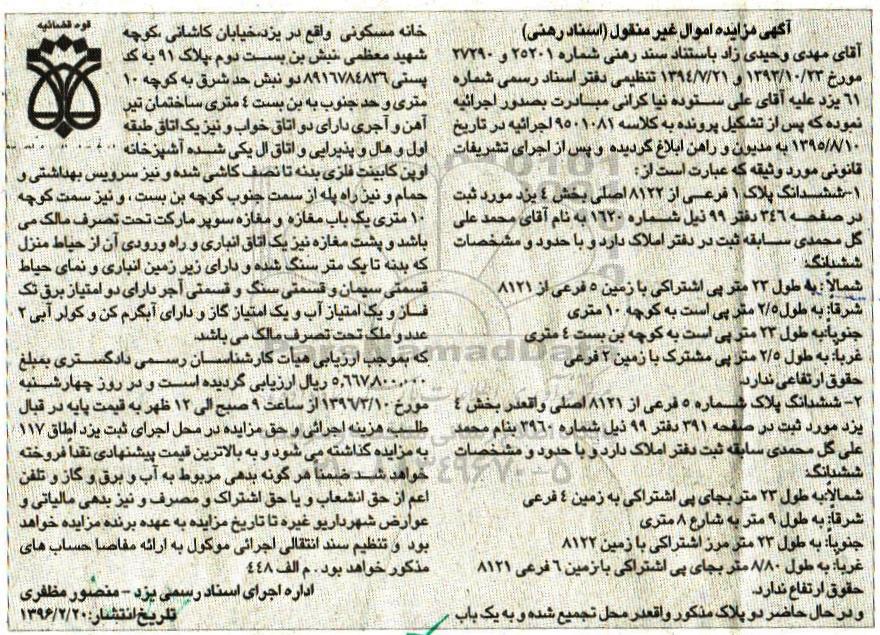 آگهی مزایده اموال غیر منقول (اسناد رهنی)
آقای مهدی وحیدی زاد باستناد سند رهنی شماره ۲۵۲۰۱ و ۲۷۲۹۰
مورخ ۱۳۹۳/۱۰/۲۳ و ۱۳۹۴/۷/۲۱ تنظیمی دفتر اسناد رسمی شماره
۶۱ یزد علیه آقای علی ستوده نیا کرانی مبادرت بصدور اجرائیه
نموده که پس از تشکیل پرونده به کلاسه ۹۵۰۱۰۸۱ اجرائیه در تاریخ
۱۳۹۵/۸/۱۰ به مدیون و راهن ابلاغ گردیده و پس از اجرای تشریفات
قانونی مورد وثیقه که عبارت است از:
۱-ششدانگ پلاک ۱ فرعی از ۸۱۲۲ اصلی بخش ۴ یزد مورد ثبت
در صفحه ۳۴۶ دفتر ۹۹ ذیل شماره ۱۶۳۰ به نام آقای محمد علی
گل محمدی سابقه ثبت در دفتر املاک دارد و با حدود و مشخصات
ششدانگ:
شمالاً: به طول ۲۳ متر پی اشتراکی با زمین ۵ فرعی از ۸۱۲۱
شرقاً: به طول ۲/۵ متر پی است به کوچه ۱۰ متری
جنوباً: به طول ۲۳ متر پی است به کوچه بن بست ۴ متری
غرباً: به طول ۲/۵ متر پی مشترک با زمین ۲ فرعی
حقوق ارتفاعی ندارد.
۲- ششدانگ پلاک شماره ۵ فرعی از ۸۱۲۱ اصلی واقعدر بخش ۴
یزد مورد ثبت در صفحه ۳۹۱ دفتر ۹۹ ذیل شماره ۳۹۶۰ بنام محمد
علی گل محمدی سابقه ثبت دفتر املاک دارد و با حدود و مشخصات
ششدانگ:
شمالاً: به طول ۲۳ متر بجای پی اشتراکی به زمین ۴ فرعی
شرقاً: به طول ۹ متر به شارع ۸ متری
جنوباً: به طول ۲۳ متر مرز اشتراکی با زمین ۸۱۲۲
غرباً: به طول ۸/۸۰ متر بجای پی اشتراکی با زمین ۶ فرعی ۸۱۲۱
حقوق ارتفاع ندارد.
و در حال حاضر دو پلاک مذکور واقعدر محل تجمیع شده و به یک باب
قوه قضائیه
خانه مسکونی واقع در یزد،خیابان کاشانی ،کوچه
شهید معظمی نبش بن بست دوم ،پلاک ۹۱ به کد
پستی ۸۹۱۶۷۸۴۸۳۶ دو نبش حد شرق به کوچه ۱۰
متری و حد جنوب به بن بست ۴ متری ساختمان تیر
آهن و آجری دارای دو اتاق خواب و نیز یک اتاق طبقه
اول و هال و پذیرایی و اتاق ال یکی شده آشپزخانه
اوپن کابینت فلزی بدنه تا نصف کاشی شده و نیز سرویس بهداشتی و
حمام و نیز راه پله از سمت جنوب کوچه بن بست ، و نیز سمت کوچه
۱۰ متری یک باب مغازه و مغازه سوپر مارکت تحت تصرف مالک می
باشد و پشت مغازه نیز یک اتاق انباری و راه ورودی آن از حیاط منزل
که بدنه تا یک متر سنگ شده و دارای زیر زمین انباری و نمای حیاط
قسمتی سیمان و قسمتی سنگ و قسمتی آجر دارای دو امتیاز برق تک
فاز و یک امتیاز آب و یک امتیاز گاز و دارای آبگرم کن و کولر آبی ۲
عدد و ملک تحت تصرف مالک می باشد.
که بموجب ارزیابی هیأت کارشناسان رسمی دادگستری بمبلغ
۵،۶۶۷،۸۰۰،۰۰۰ ریال ارزیابی گردیده است و در روز چهارشنبه
مورخ ۱۳۹۶/۳/۱۰ از ساعت ۹ صبح الی ۱۲ ظهر به قیمت پایه در قبال
طلب، هزینه اجرائی و حق مزایده در محل اجرای ثبت یزد اطاق ۱۱۷
به مزایده گذاشته می شود و به بالاترین قیمت پیشنهادی نقداً فروخته
خواهد شد. ضمناً هر گونه بدهی مربوط به آب و برق و گاز و تلفن
اعم از حق انشعاب و یا حق اشتراک و مصرف و نیز بدهی مالیاتی و
عوارض شهرداریو غیره تا تاریخ مزایده به عهده برنده مزایده خواهد
بود و تنظیم سند انتقالی اجرائی موکول به ارائه مفاصا حساب های
مذکور خواهد بود . م الف ۴۴۸
اداره اجرای اسناد رسمی یزد - منصور مظفری
تاریخ انتشار: ۱۳۹۶/۲/۲۰